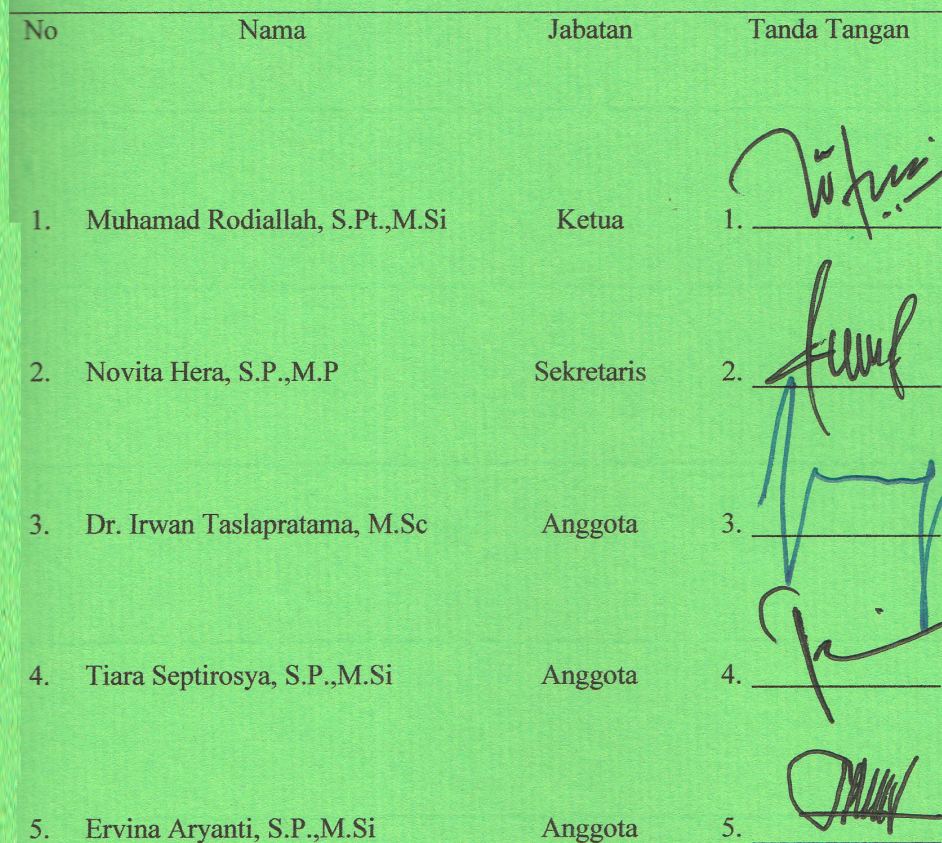 No Nama Jabatan Tanda Tangan
1. Muhamad Rodiallah, S.Pt.,M.Si Ketua 1.
2. Novita Hera, S.P.,M.P Sekretaris 2.
3. Dr. Irwan Taslapratama, M.Sc Anggota 3.
4. Tiara Septirosya, S.P.,M.Si Anggota 4.
5. Ervina Aryanti, S.P.,M.Si Anggota 5.